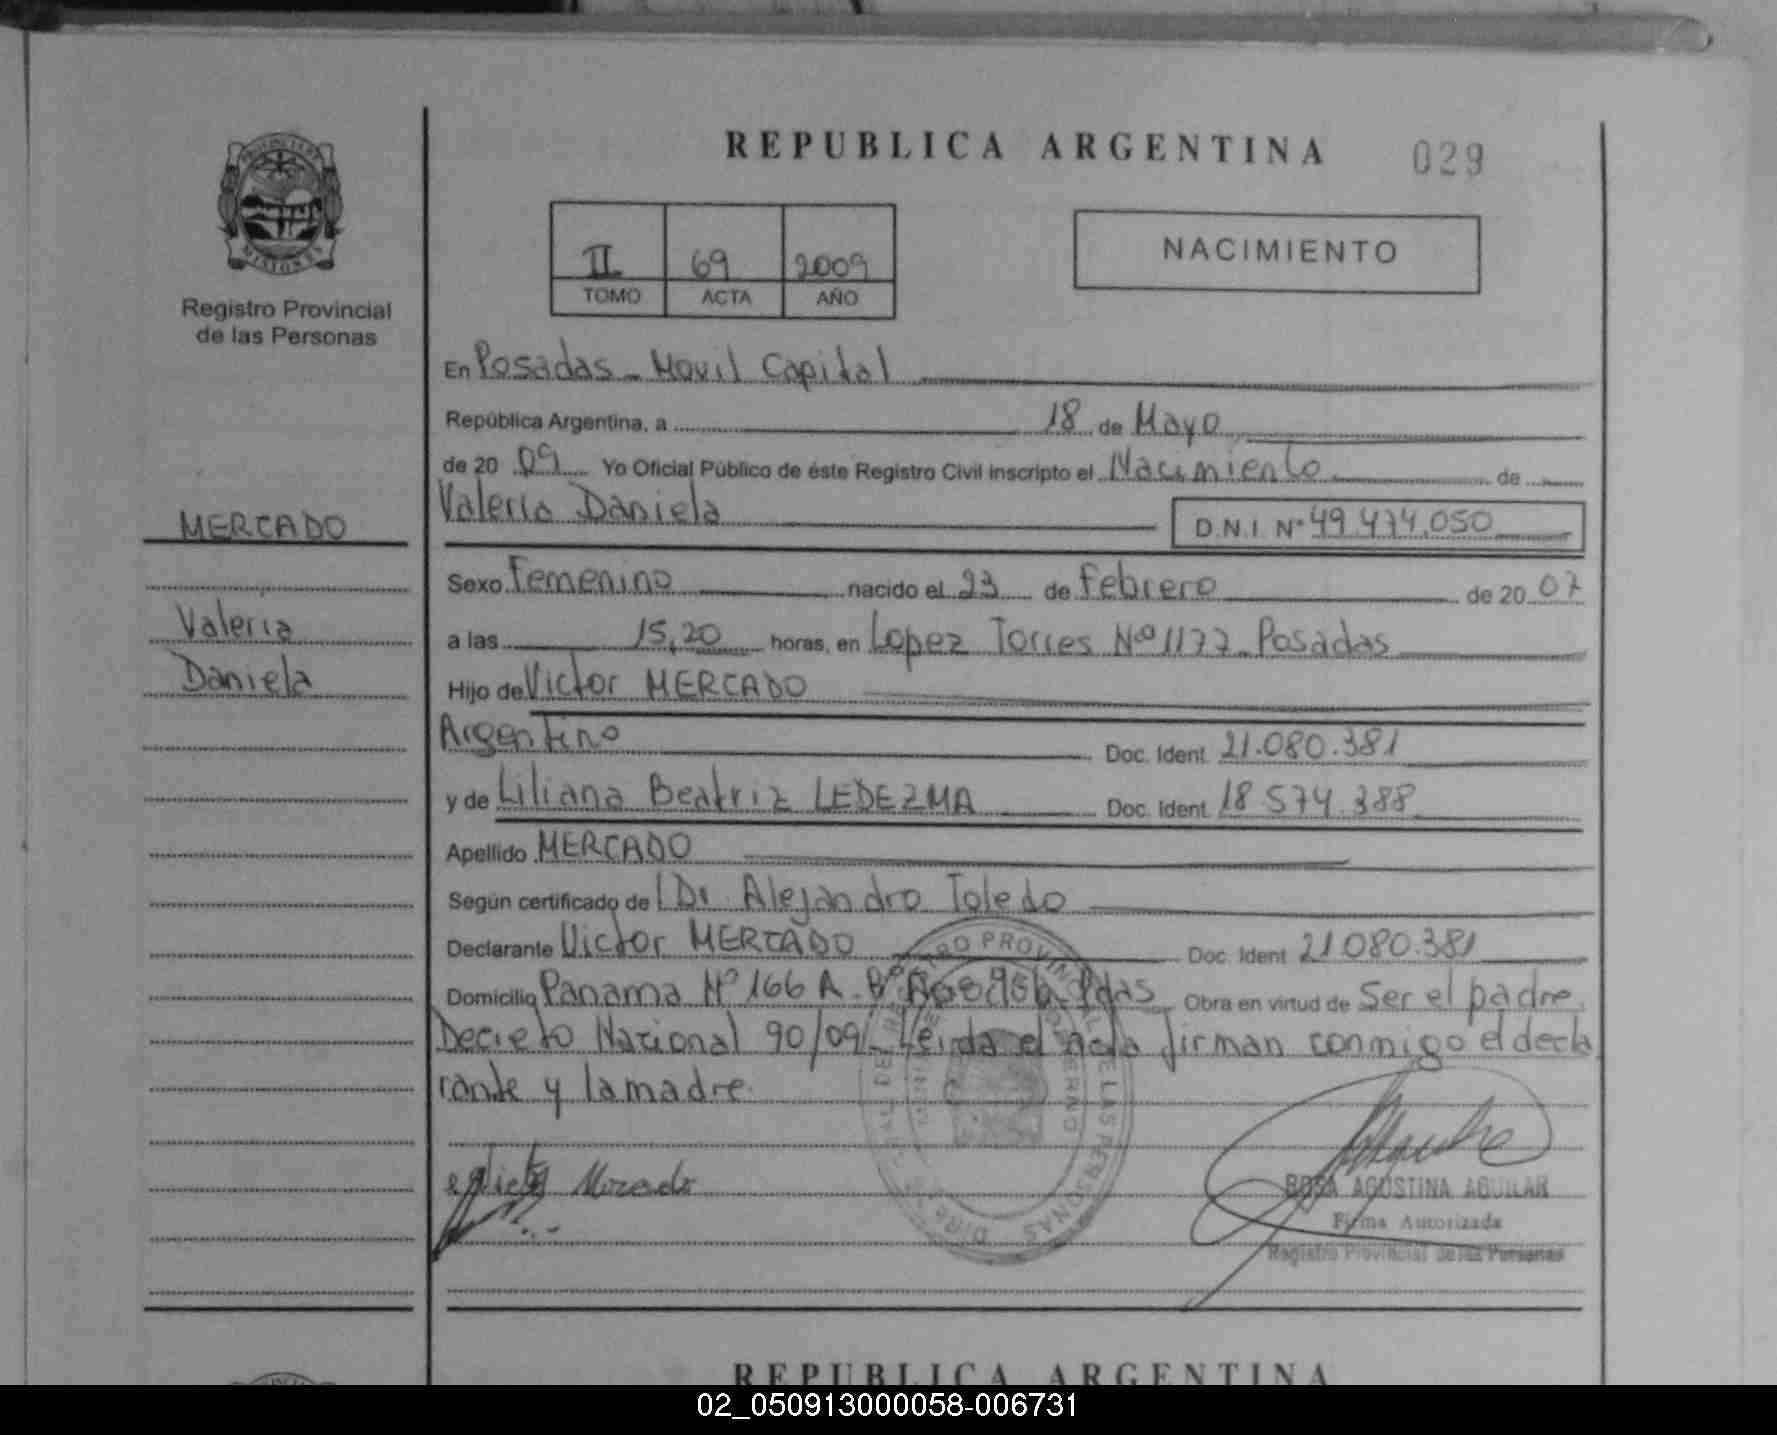 REPUBLICA ARGENTINA 029
PROVINCIA DE
MISIONES
Registro Provincial
de las Personas
II 69 2009
TOMO ACTA AÑO
NACIMIENTO
En Posadas - Movil Capital
República Argentina, a 18 de Mayo
de 20 09 Yo Oficial Público de éste Registro Civil inscripto el Nacimiento de
Valeria Daniela D.N.I. Nº 49.474.050
MERCADO
Valeria
Daniela
Sexo Femenino nacido el 23 de Febrero de 20 07
a las 15,20 horas, en Lopez Torres Nº 1177 - Posadas
Hijo de Victor MERCADO
Argentino Doc. Ident. 21.080.381
y de Liliana Beatriz LEDEZMA Doc. Ident. 18.574.388
Apellido MERCADO
Según certificado de l Dr. Alejandro Toledo
Declarante Victor MERCADO Doc. Ident 21.080.381
Domicilio Panama Nº 166 A - Bº Pdas Obra en virtud de Ser el padre.
Decreto Nacional 90/09 - Leida el acta firman conmigo el decla
rante y la madre.
Victor Mercado
REGISTRO PROVINCIAL DE LAS PERSONAS
ROSA AGUSTINA AGUILAR
Firma Autorizada
Registro Provincial de las Personas
REPUBLICA ARGENTINA
02_050913000058-006731